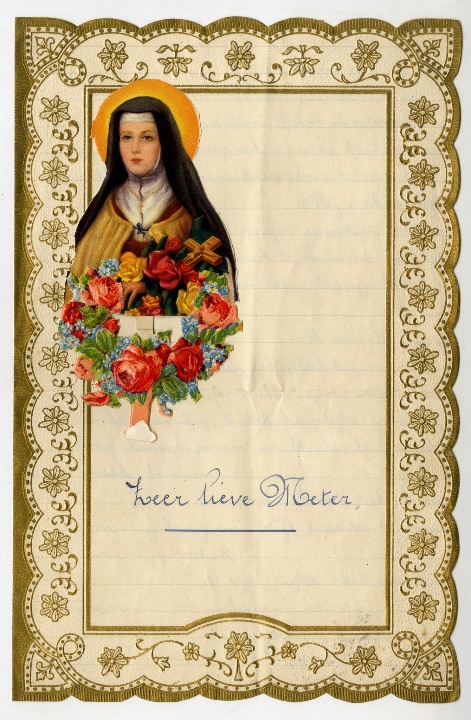 Zeer lieve Meter,